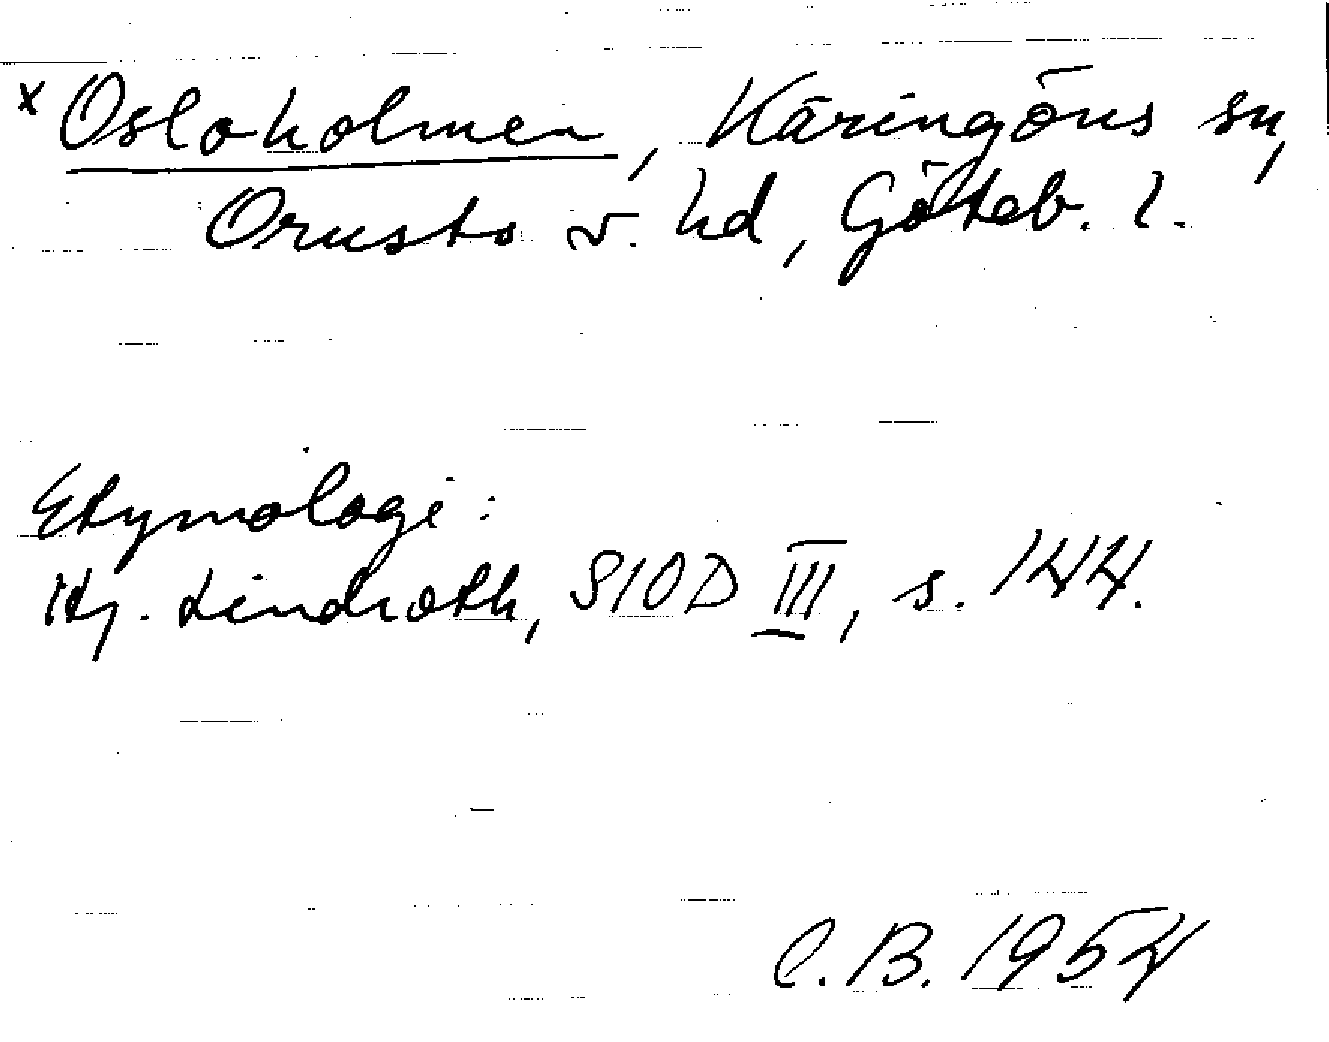 x Osloholmen, Käringöns sn,
Orusts v. hd, Göteb. l.
Etymologi:
Hj. Lindroth, SIOD III, s. 144.
C.B. 1954